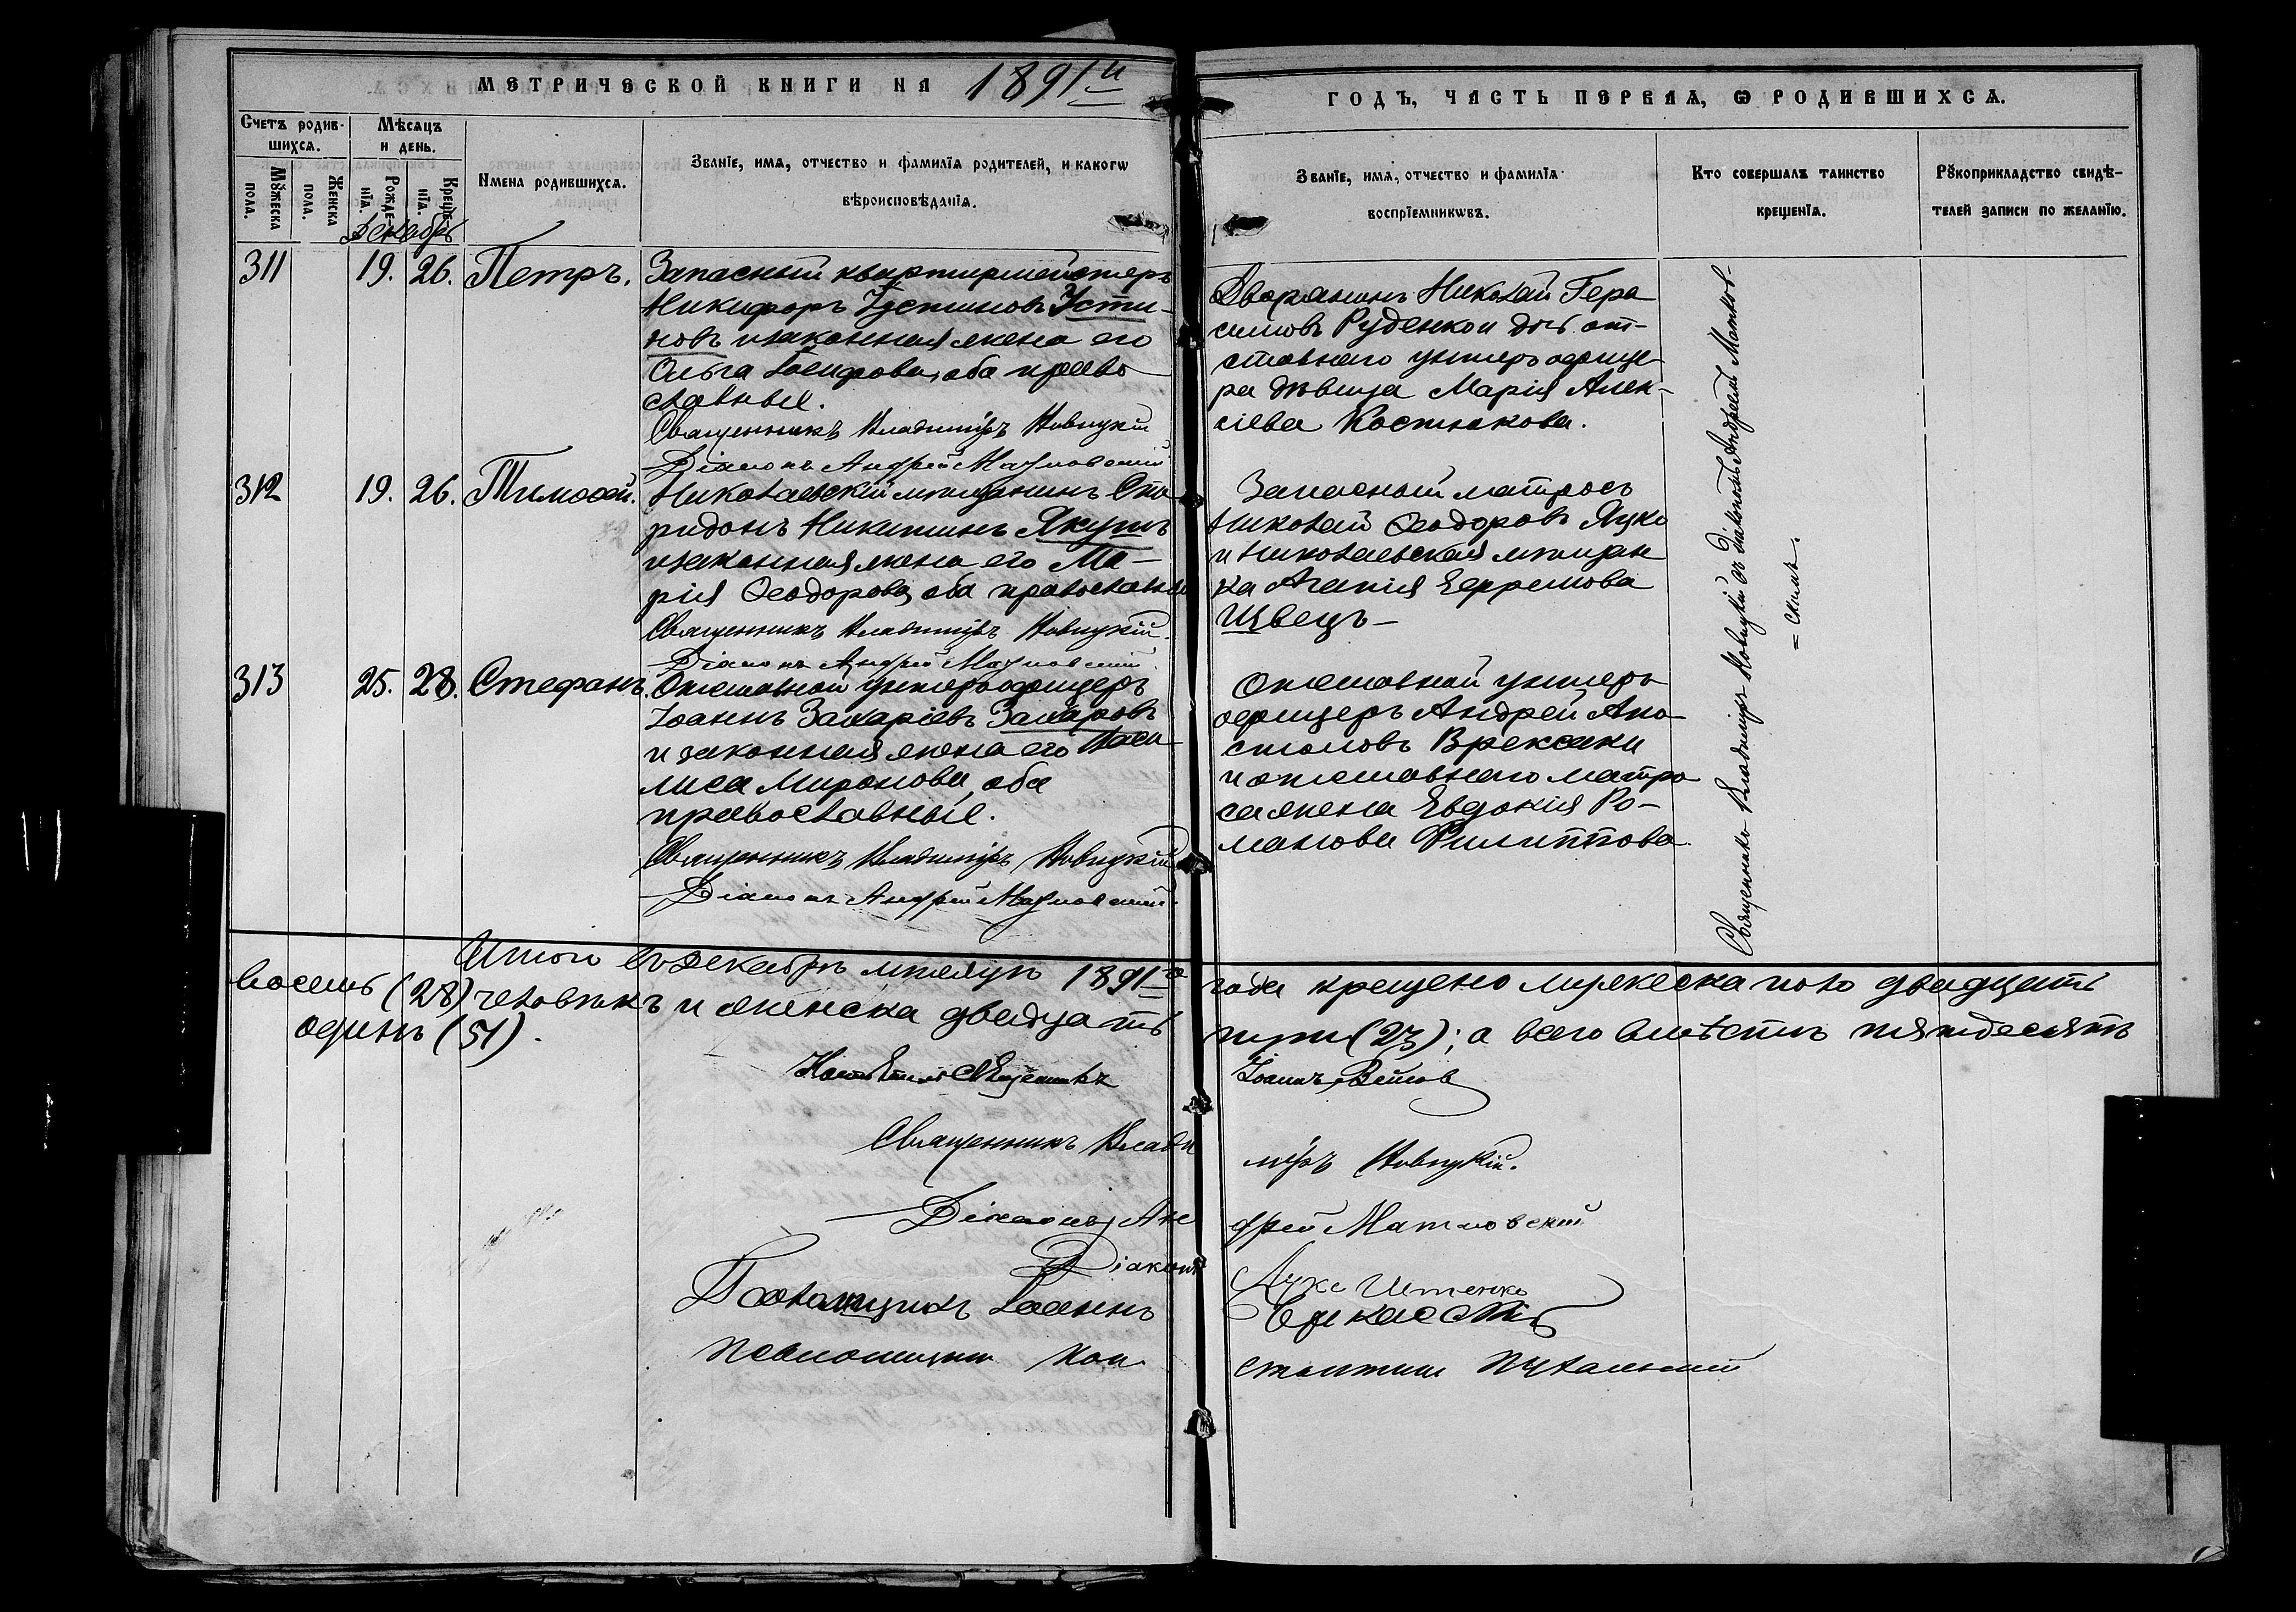 МЕТРИЧЕСКОЙ КНИГИ НА 1891й
ГОДЪ, ЧАСТЬ ПЕРВАЯ, Ѡ РОДИВШИХСѦ.
Счетъ родив-
шихсѧ.
Мꙋжеска пола.
Женска пола.
Мѣсѧцъ
и день.
Рожденїѧ.
Крещенїѧ.
Имена родившихсѧ.
Званїе, имѧ, отчество и фамилїѧ родителей, и какогѡ
вѣроисповѣданїѧ.
Званїе, имѧ, отчество и фамилїѧ
воспрїемникѡвъ.
Кто совершалъ таинство
крещенїѧ.
Рꙋкоприкладство свидѣ-
телей записи по желанїю.
Декабрь
311 19. 26. Петръ.
Запасный квартирмейстеръ
Никифоръ Устиновъ Усти-
новъ и законная жена его
Ольга, оба право
славные.
Священникъ Владиміръ Новицкій
Діаконъ Андрей Матковскій
Дворянинъ Николай Гера
симовъ Руденко и дочь от-
ставнаго унтеръ офице-
ра дѣвица Марія Алек-
сіева Костюкова.
312 19. 26. Тимоѳей.
Николаевскій мѣщанинъ Спи
ридонъ Никитинъ Якушъ
и законная жена его Ма-
рія Ѳеодорова, оба православны
Священникъ Владиміръ Новицкій.
Діаконъ Андрей Матковскій
Запасный матросъ
Николай Ѳеодоровъ Яцко
и Николаевская мѣщан
ка Агапія Ефремова
Швецъ-
313 25. 28. Стефанъ.
Отставной унтеръ офицеръ
Іоаннъ Захаріевъ Захаровъ
и законная жена его Васи
лиса Миронова, оба
православные.
Священникъ Владиміръ Новицкій
Діаконъ Андрей Матковскій.
Отставной унтеръ
офицеръ Андрей Апо
столовъ
и отставнаго матро
са жена Евдокія Ро-
манова Филиппова.
Священникъ Владиміръ Новицкій съ Діакономъ Андреемъ Матков-
=скимъ.
Итого въ декабрѣ мѣсяцѣ 1891го года крещено мужеска пола двадцать
восемь (28) человѣкъ и женска двадцать три (23); а всего вмѣстѣ пятьдесятъ
одинъ (51).
Іоаннъ
Священникъ Владиміръ Новицкій.
Діаконъ Андрей Матковскій
Діаконъ Лука
Іоаннъ
Псаломщикъ Константинъ